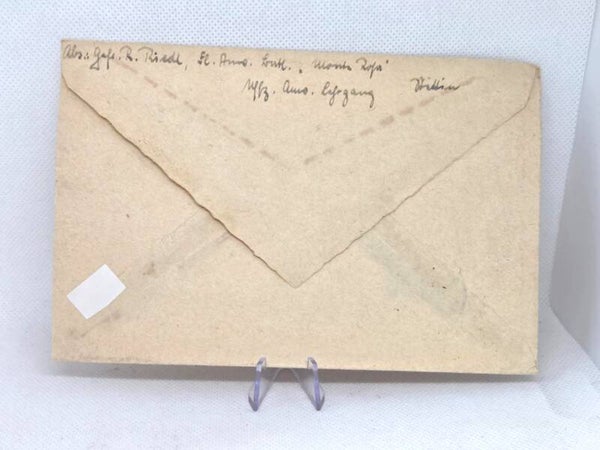 Abs.: Gefr. R. Riedl, St. Anw. Battl. „Monte Rosa“
Uffz. Anw. Lehrgang Stettin